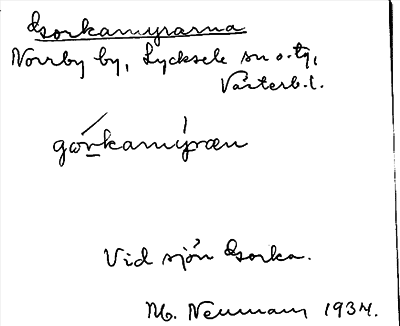 Gorkamyrarna
Norrby by, Lycksele sn o. tg,
Västerb. l.
gorkamýræn
Vid sjön Gorka.
M. Neumann 1934.